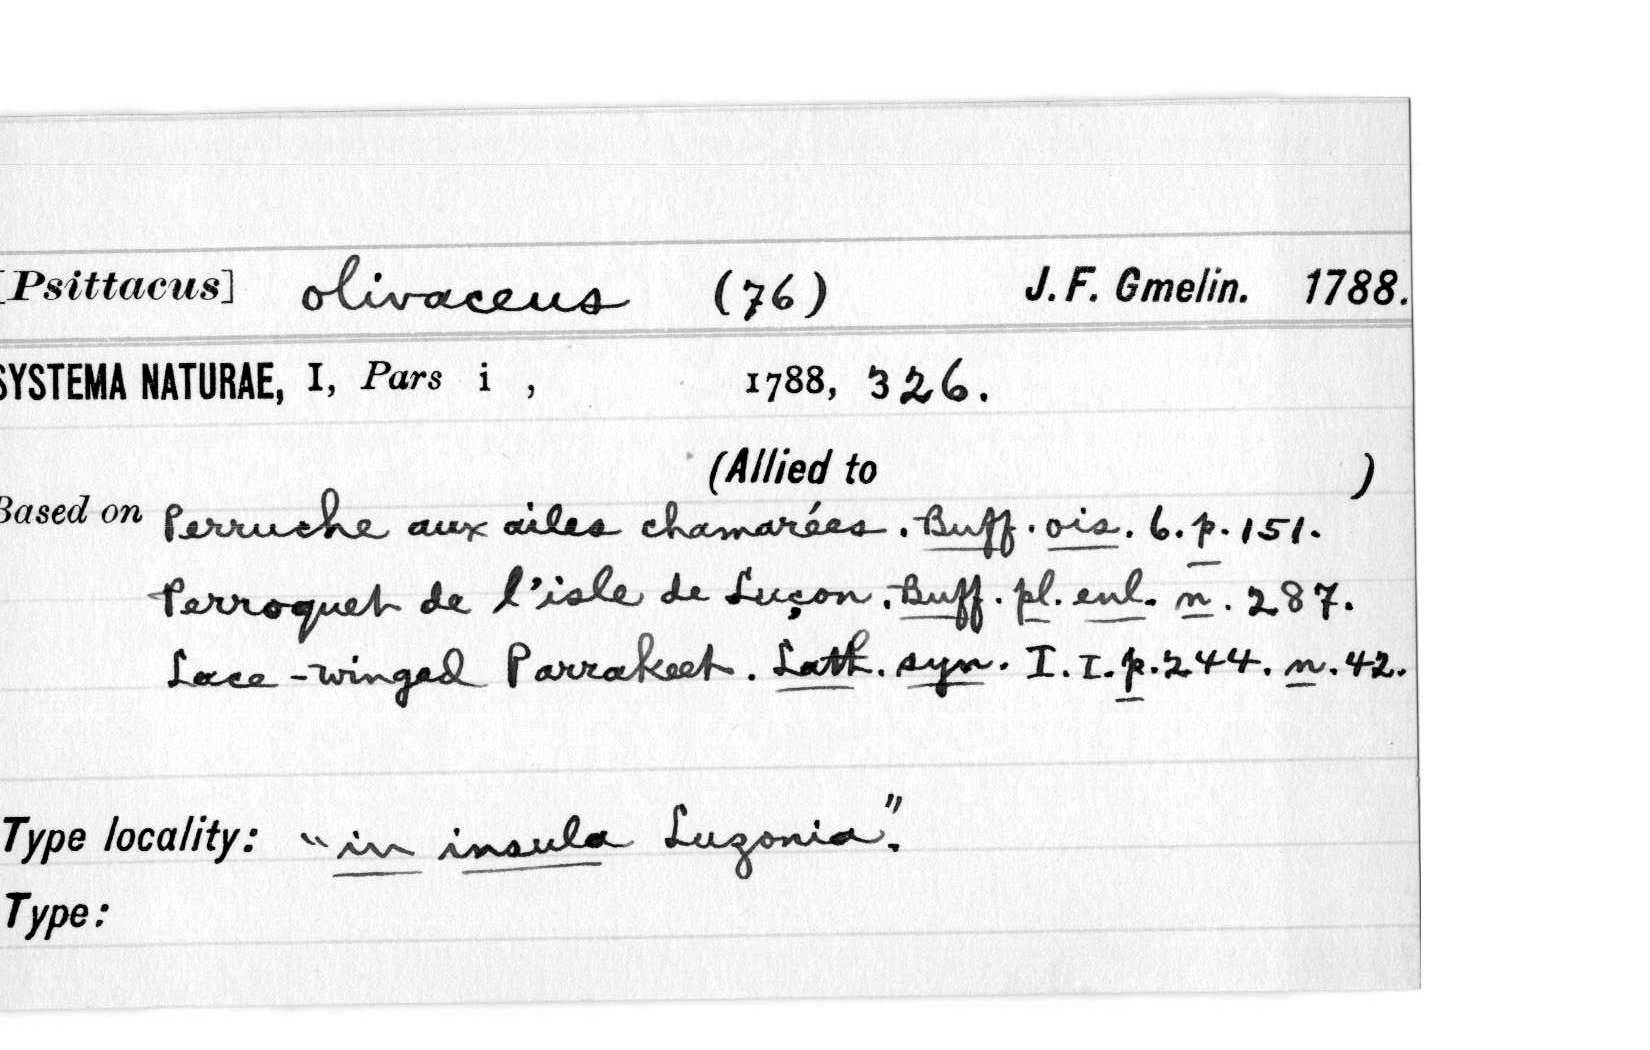 [Psittacus] olivaceus (76) J. F. Gmelin. 1788.
SYSTEMA NATURAE, I, Pars i , 1788, 326.
(Allied to )
Based on Perruche aux ailes chamarées. Buff. ois. 6. p. 151.
Perroquet de l'isle de Luçon. Buff. pl. enl. n. 287.
Lace-winged Parrakeet. Lath. syn. I. I. p. 244. n. 42.
Type locality: "in insula Luzonia".
Type: